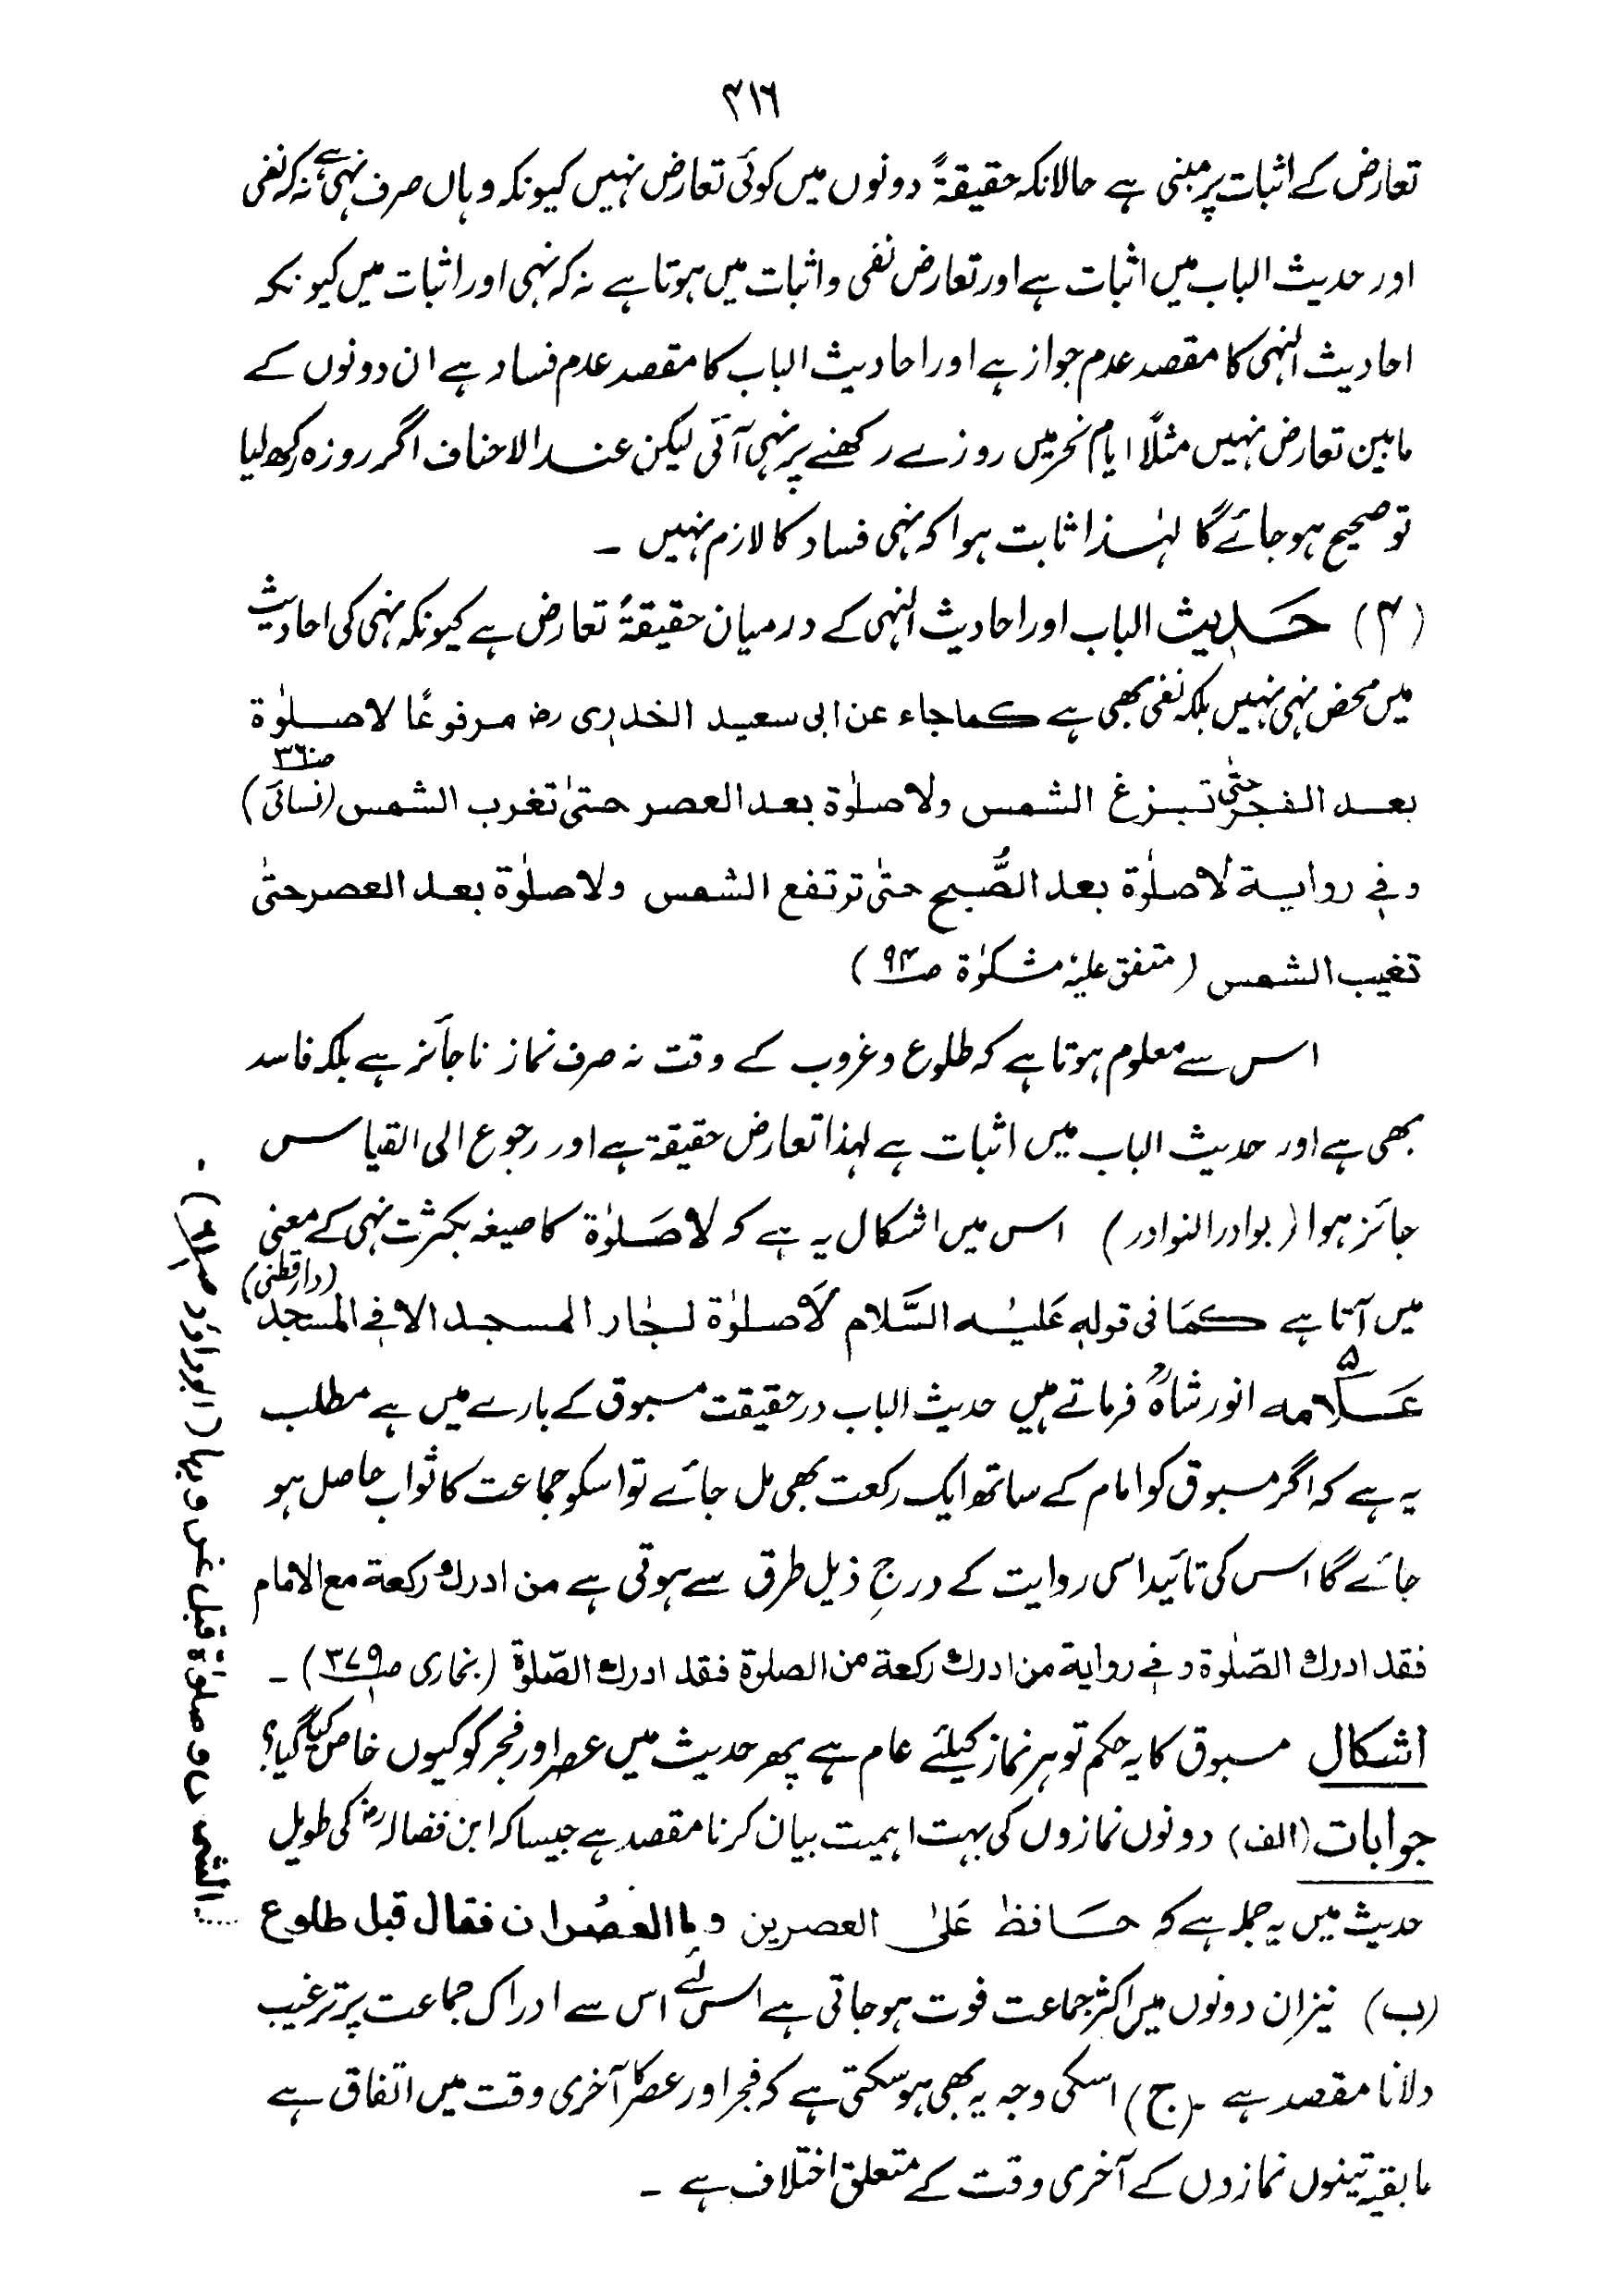 ۴۱۶
تعارض کے اثبات پر مبنی ہے حالانکہ حقیقۃً دونوں میں کوئی تعارض نہیں کیونکہ وہاں صرف نہی ہے نہ کہ نفی
اور حدیث الباب میں اثبات ہے اور تعارض نفی و اثبات میں ہوتا ہے نہ کہ نہی اور اثبات میں کیونکہ
احادیث النہی کا مقصد عدم جواز ہے اور احادیث الباب کا مقصد عدم فساد ہے ان دونوں کے
مابین تعارض نہیں مثلاً ایام نحر میں روزے رکھنے پر نہی آئی لیکن عند الاحناف اگر روزہ رکھ لیا
تو صحیح ہو جائے گا لہٰذا ثابت ہوا کہ نہی فساد کا لازم نہیں ۔
(۴) حدیث الباب اور احادیث النہی کے درمیان حقیقۃً تعارض ہے کیونکہ نہی کی احادیث
میں محض نہی نہیں بلکہ نفی بھی ہے كما جاء عن ابی سعید الخدری رض مرفوعًا لا صلوٰة
بعد الفجر حتیٰ تبزغ الشمس ولا صلوٰة بعد العصر حتیٰ تغرب الشمس (نسائی ص۳۶)
وفی روایة لا صلوٰة بعد الصُّبح حتیٰ ترتفع الشمس ولا صلوٰة بعد العصر حتیٰ
تغیب الشمس (متفق علیہ مشکوٰة ص۹۴)
اس سے معلوم ہوتا ہے کہ طلوع و غروب کے وقت نہ صرف نماز ناجائز ہے بلکہ فاسد
بھی ہے اور حدیث الباب میں اثبات ہے لہذا تعارض حقیقۃ ہے اور رجوع الی القیاس
جائز ہوا (بوادر النوادر) اس میں اشکال یہ ہے کہ لا صَلوٰة کا صیغہ بکثرت نہی کے معنی
میں آتا ہے کمَا فی قولہٖ عَلیْہ السَّلام لَا صلوٰة لجَار المسجد الا فی المسجد (دارقطنی)
۵ عَلّامہ انور شاہؒ فرماتے ہیں حدیث الباب درحقیقت مسبوق کے بارے میں ہے مطلب
یہ ہے کہ اگر مسبوق کو امام کے ساتھ ایک رکعت بھی مل جائے تو اسکو جماعت کا ثواب حاصل ہو
جائے گا اس کی تائید اسی روایت کے درجِ ذیل طرق سے ہوتی ہے من ادرك ركعة مع الامام
فقد ادرك الصّلوٰة وفی روایة من ادرك ركعة من الصلوة فقد ادرك الصّلوة (بخاری ص۳۷۹) ۔
اشکال مسبوق کا یہ حکم تو ہر نماز کیلئے عام ہے پھر حدیث میں عصر اور فجر کو کیوں خاص کیا گیا؟
جوابات (الف) دونوں نمازوں کی بہت اہمیت بیان کرنا مقصد ہے جیسا کہ ابن فضالہؓ کی طویل
حدیث میں یہ جملہ ہے کہ حَافظ عَلیٰ العصرین وما العصُران فقال قبل طلوع
..... الشمس وصلوٰة قبل غروبها (ابوداؤد) ۔
(ب) نیز ان دونوں میں اکثر جماعت فوت ہو جاتی ہے اس لئے اس سے ادراک جماعت پر ترغیب
دلانا مقصد ہے ۔ (ج) اسکی وجہ یہ بھی ہو سکتی ہے کہ فجر اور عصر کا آخری وقت میں اتفاق ہے
مابقیہ تینوں نمازوں کے آخری وقت کے متعلق اختلاف ہے ۔